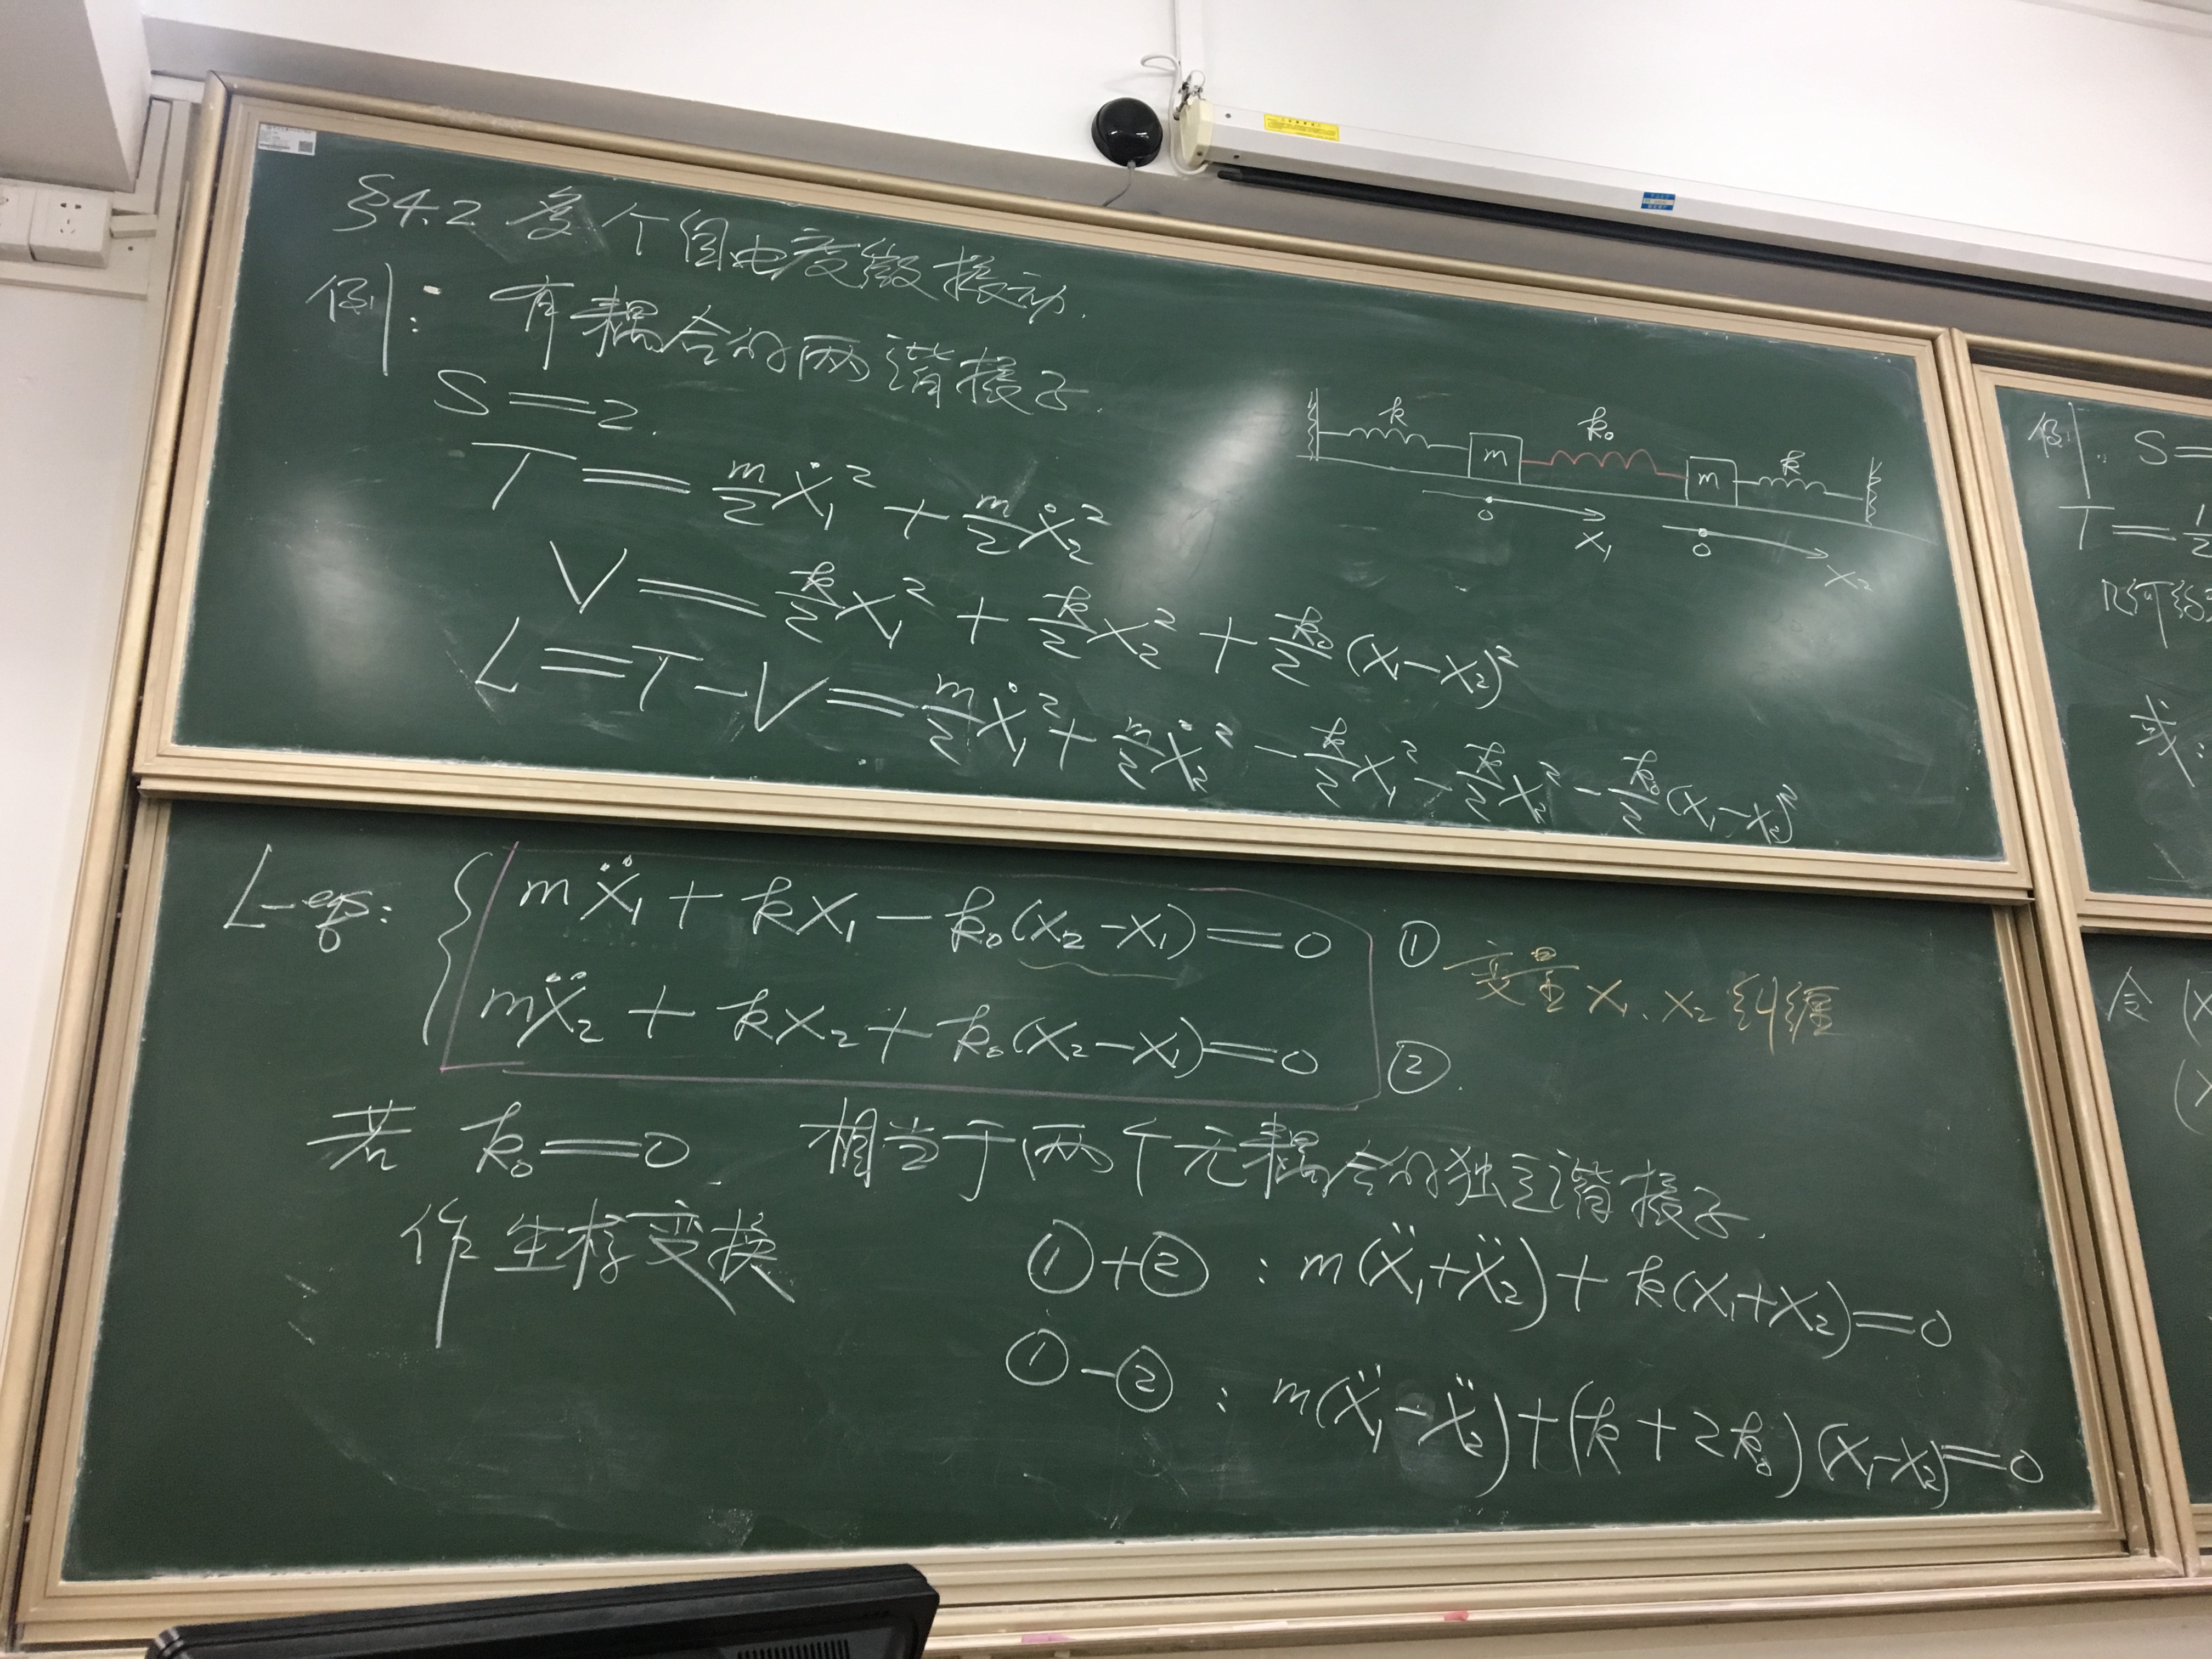 §4.2 多个自由度微振动.
例: 有耦合的两谐振子.
S=2.
T = m/2 ẋ₁² + m/2 ẋ₂²
V = k/2 x₁² + k/2 x₂² + k₀/2 (x₁-x₂)²
L=T-V= m/2 ẋ₁² + m/2 ẋ₂² - k/2 x₁² - k/2 x₂² - k₀/2 (x₁-x₂)²
k k₀
m m k
0 x₁ 0 x₂
L-eqs: mẍ₁ + kx₁ - k₀(x₂-x₁)=0 ①
变量 x₁、x₂ 纠缠
mẍ₂ + kx₂ + k₀(x₂-x₁)=0 ②.
若 k₀=0 相当于两个无耦合的独立谐振子.
作坐标变换
①+② : m(ẍ₁+ẍ₂) + k(x₁+x₂)=0
①-② : m(ẍ₁-ẍ₂)+(k+2k₀)(x₁-x₂)=0
例: S=
T=1/2
几何
或:
令 (x
(x